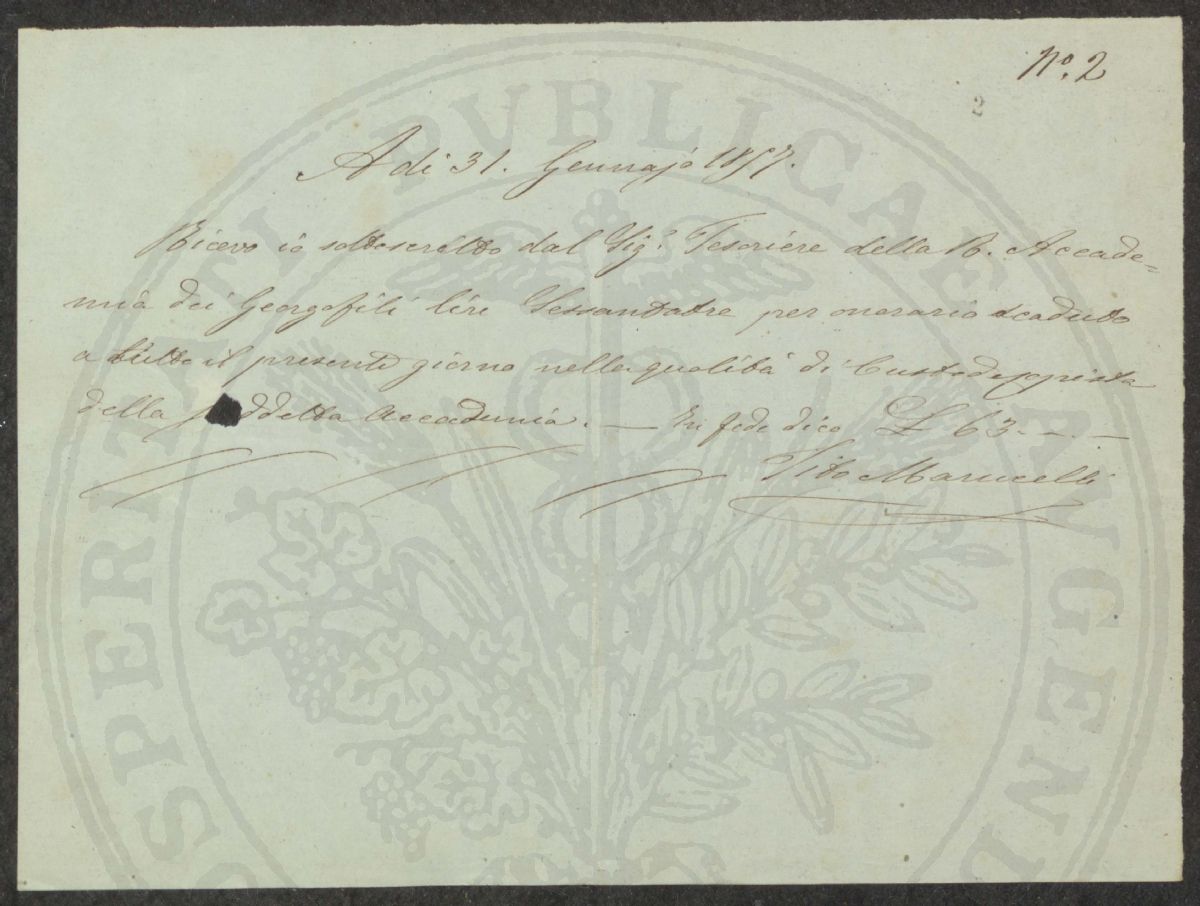 N.º 2
2
A di 31. Gennajo 1857.
Ricevo io sottoscritto dal Sig.r Tesoriere della R. Accade=
mia dei Georgofili lire Sessantatre per onorario scaduto
a tutto il presente giorno nella qualità di Custode, copista
della suddetta Accademia. — In fede dico £ 63 - - -
Tito Marucelli
PROSPERITATI PUBLICAE AUGENDAE